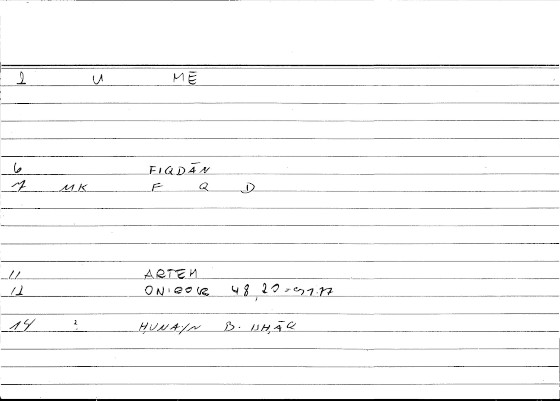 1 U MĒ
6 FIQDĀN
7 MK F Q D
11 ARTEM
12 ONIROCR 48,20
14 : ḤUNAIN B. ISḤĀQ